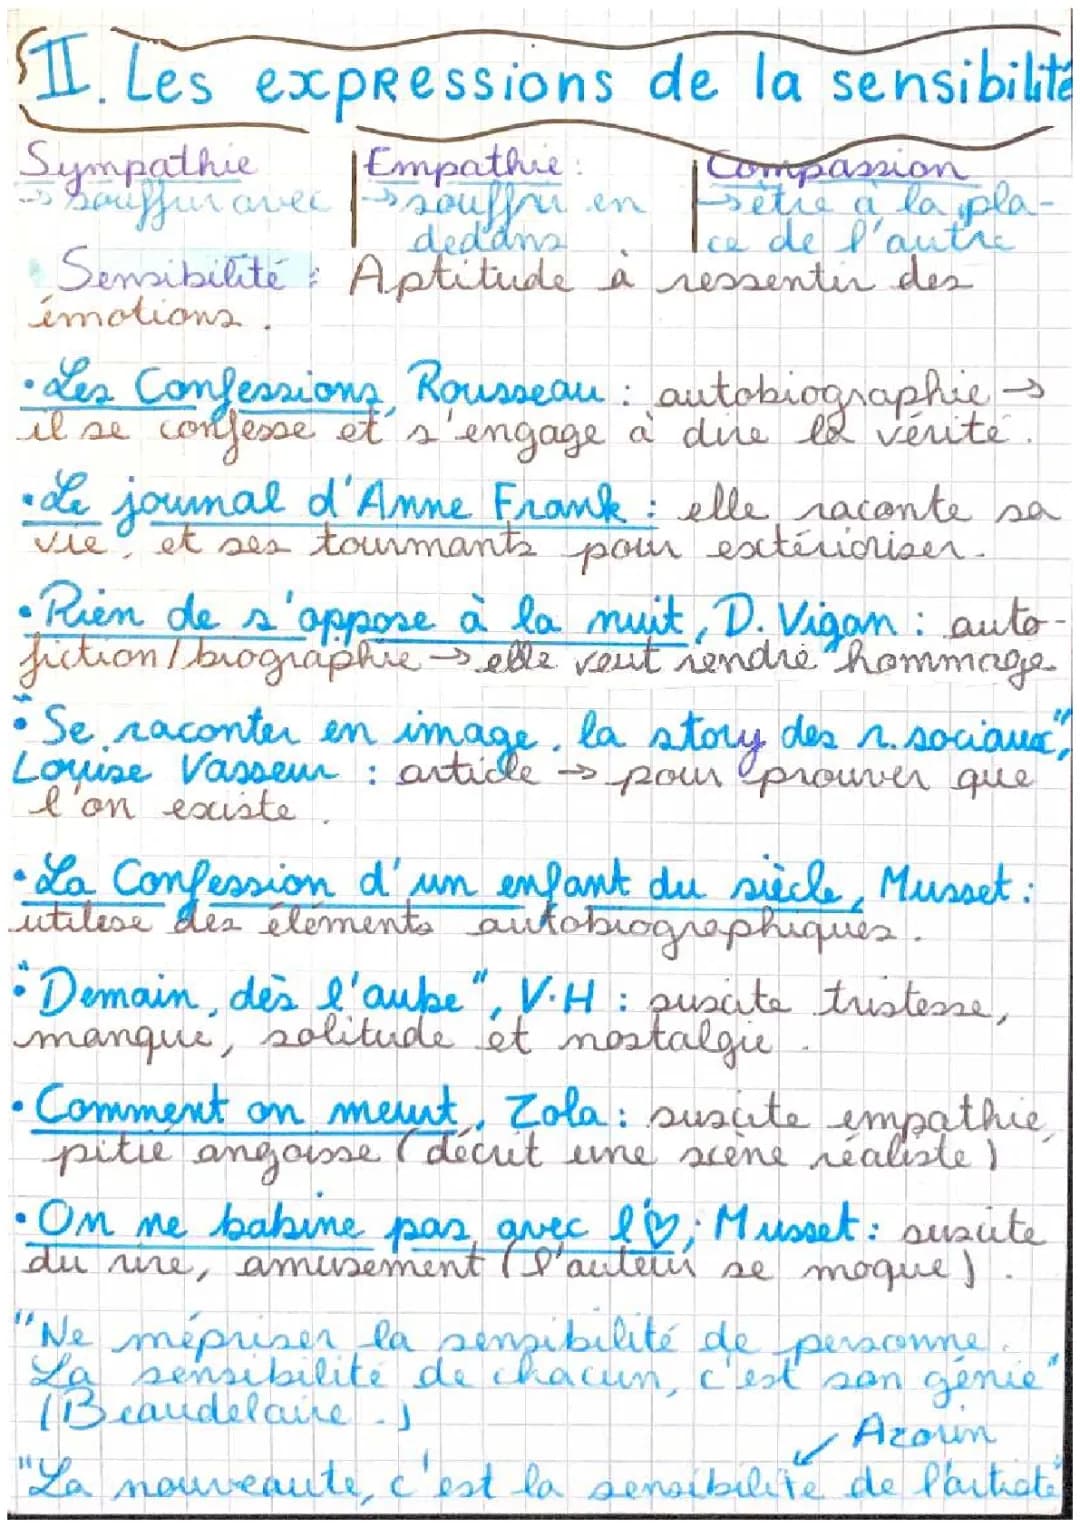 II. Les expressions de la sensibilité
Sympathie
→ souffrir avec
Empathie :
→ souffrir en
dedans
Compassion
→ être à la pla-
ce de l'autre
Sensibilité : Aptitude à ressentir des
émotions.
• Les Confessions, Rousseau : autobiographie →
il se confesse et s'engage à dire la vérité.
• Le journal d'Anne Frank : elle raconte sa
vie, et ses tourmants pour extérioriser.
• Rien de s'oppose à la nuit, D. Vigan : auto-
fiction/biographie → elle veut rendre hommage
• "Se raconter en image, la story des r. sociaux",
Louise Vasseur : article → pour prouver que
l'on existe.
• La Confession d'un enfant du siècle, Musset :
utilise des éléments autobiographiques.
• "Demain, dès l'aube", V.H : suscite tristesse,
manque, solitude et nostalgie.
• Comment on meurt, Zola : suscite empathie,
pitié angoisse (décrit une scène réaliste)
• On ne babine pas avec l'♡, Musset : suscite
du rire, amusement (l'auteur se moque).
"Ne mépriser la sensibilité de personne.
La sensibilité de chacun, c'est son génie"
(Beaudelaire.)
↙ Azorin
"La nouveauté, c'est la sensibilité de l'artiste"